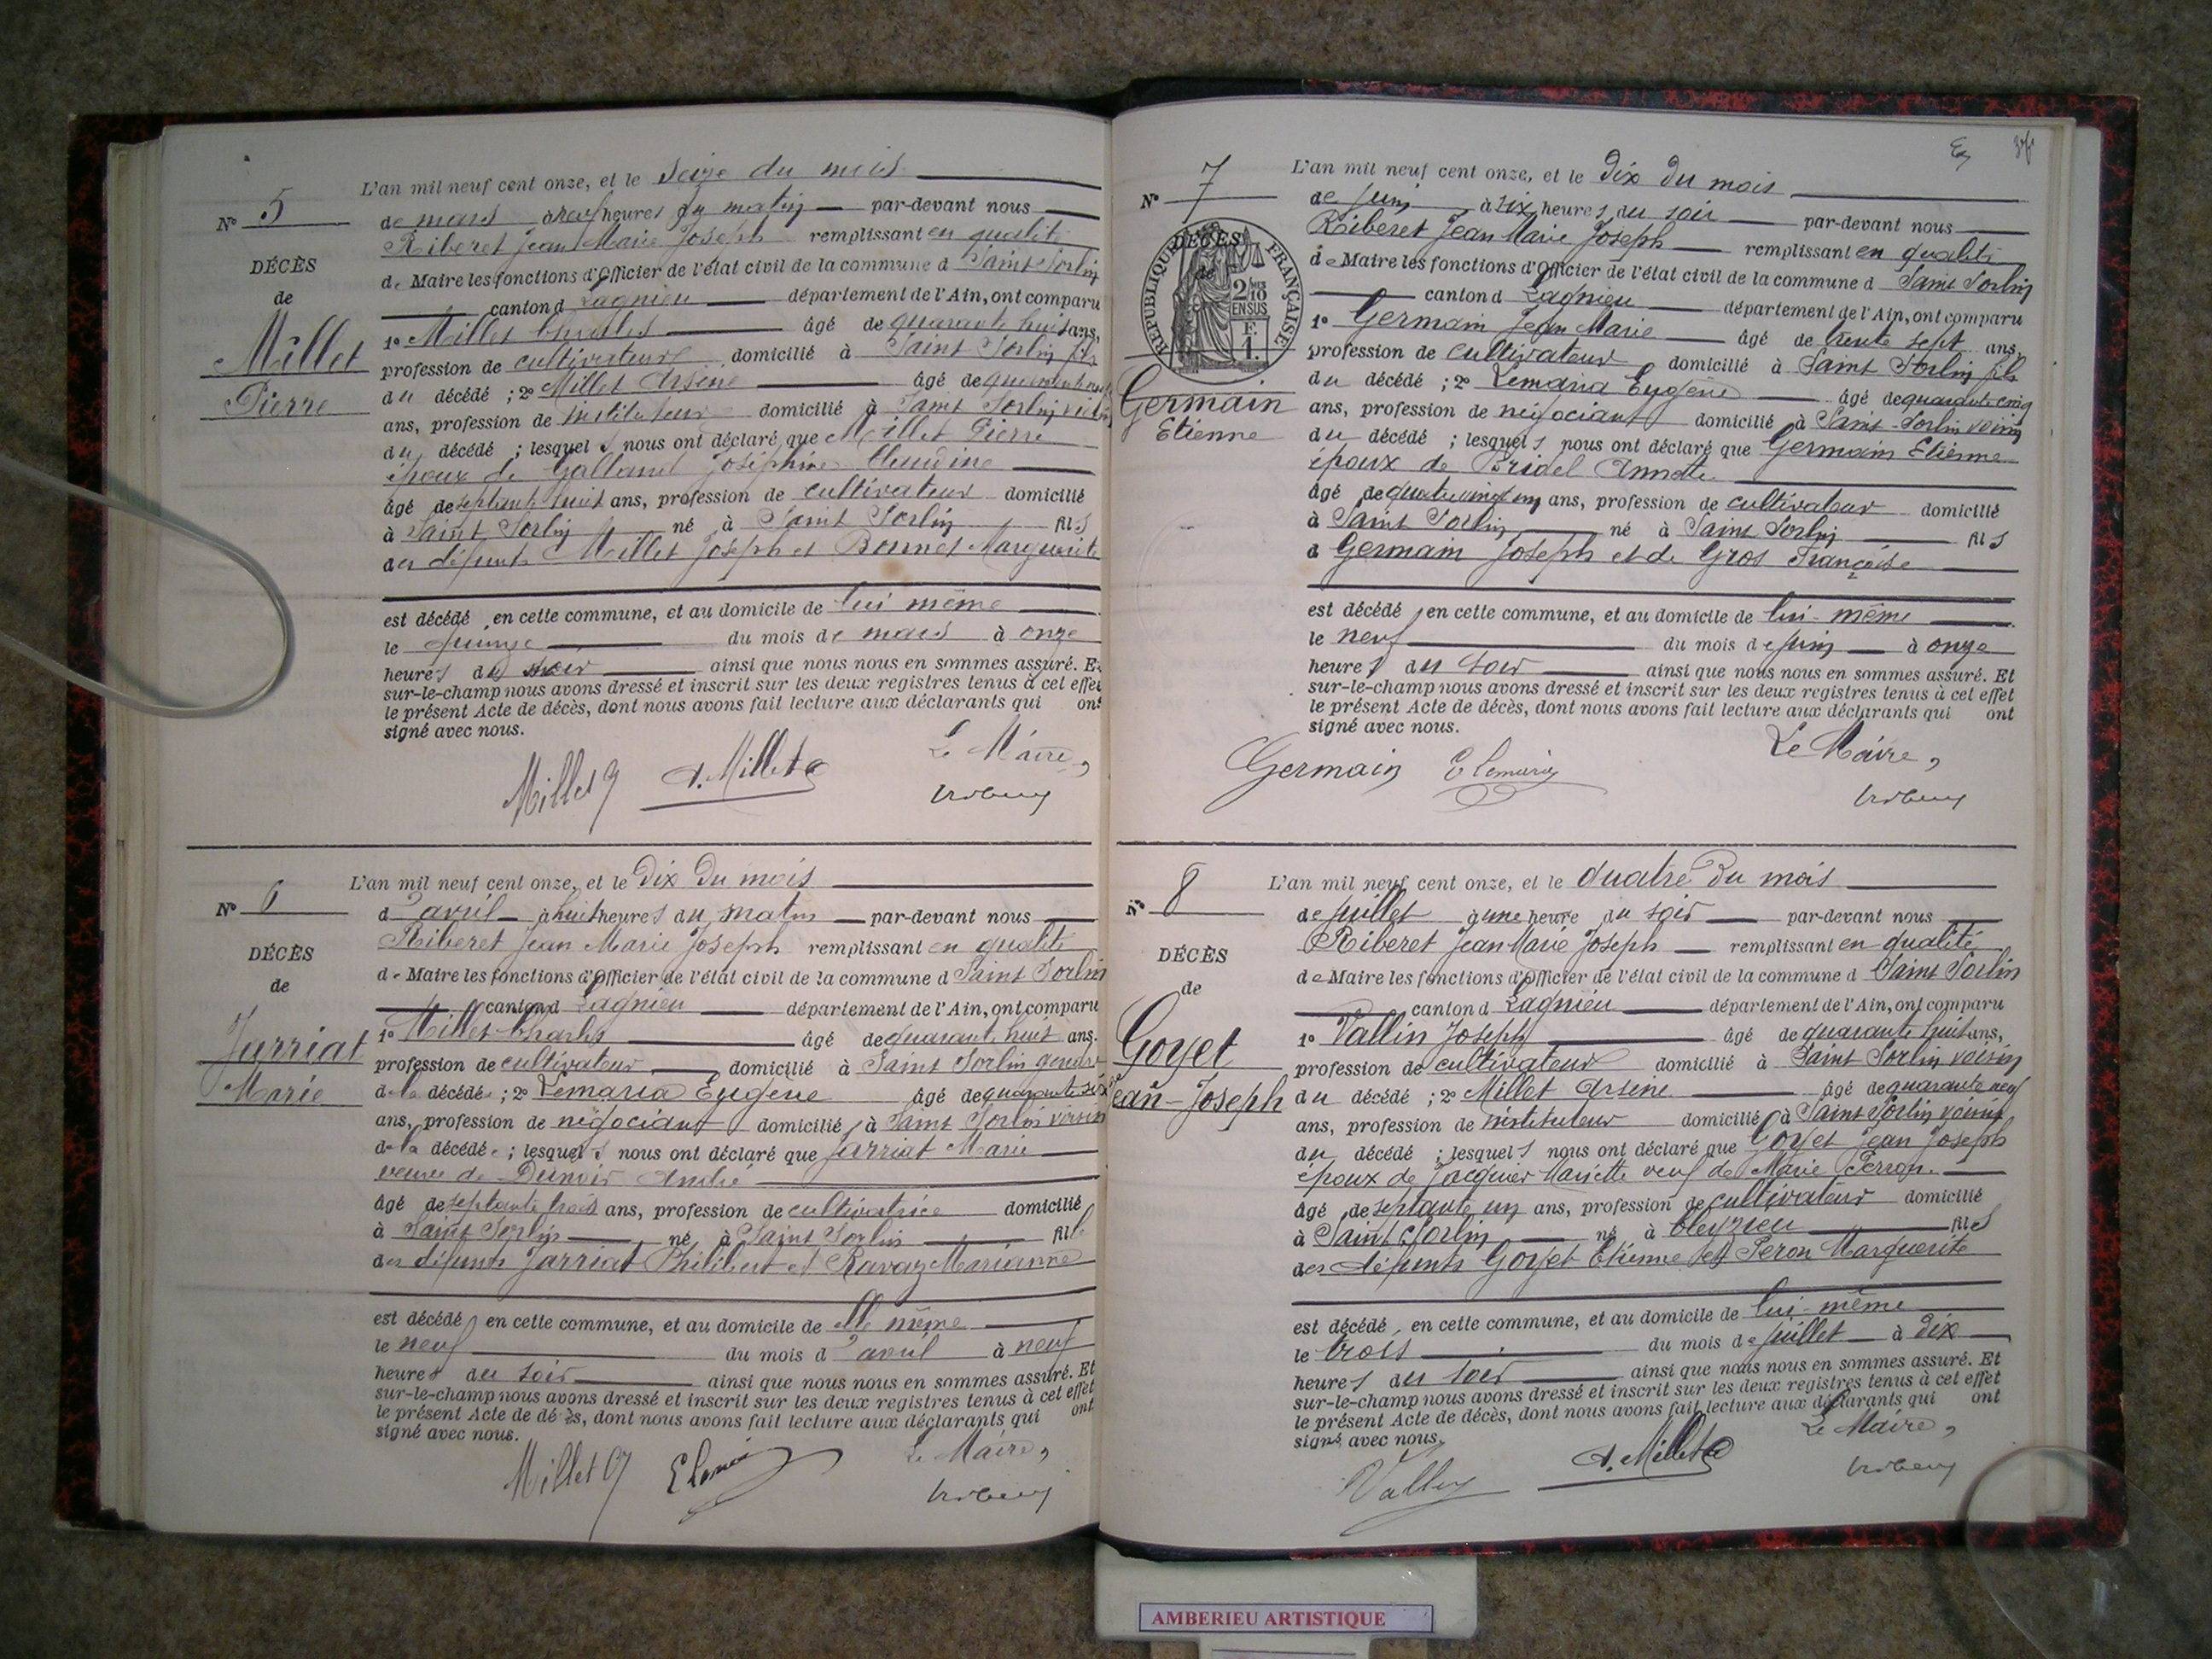 N° 5
DÉCÈS
de
Millet
Pierre
L'an mil neuf cent onze, et le seize du mois
de mars à neuf heures du matin par-devant nous
Riberet Jean Marie Joseph remplissant en qualité
de Maire les fonctions d'Officier de l'état civil de la commune d Saint Sorlin
canton d Lagnieu département de l'Ain, ont comparu
1° Millet Charles âgé de quarante huit ans,
profession de cultivateur domicilié à Saint Sorlin fils
du décédé ; 2° Millet Arsène âgé de
ans, profession de instituteur domicilié à Saint Sorlin voisin
du décédé ; lesquels nous ont déclaré que Millet Pierre
époux de Galland Joséphine Claudine
âgé de septante huit ans, profession de cultivateur domicilié
à Saint Sorlin né à Saint Sorlin fils
des défunts Millet Joseph et Bonnet Marguerite
est décédé en cette commune, et au domicile de lui même
le quinze du mois de mars à onze
heures du soir ainsi que nous nous en sommes assuré. Et
sur-le-champ nous avons dressé et inscrit sur les deux registres tenus à cet effet
le présent Acte de décès, dont nous avons fait lecture aux déclarants qui ont
signé avec nous.
Le Maire,
Millet A. Millet
N° 6
DÉCÈS
de
Jarriat
Marie
L'an mil neuf cent onze, et le dix du mois
d'avril à huit heures du matin par-devant nous
Riberet Jean Marie Joseph remplissant en qualité
de Maire les fonctions d'Officier de l'état civil de la commune d Saint Sorlin
canton d Lagnieu département de l'Ain, ont comparu
1° Millet Charles âgé de quarante huit ans.
profession de cultivateur domicilié à Saint Sorlin gendre
de la décédée ; 2° Lemaria Eugène âgé de quarante six
ans, profession de négociant domicilié à Saint Sorlin voisin
de la décédée ; lesquels nous ont déclaré que Jarriat Marie
veuve de Dunoir André
âgé de septante trois ans, profession de cultivatrice domicilié
à Saint Sorlin né à Saint Sorlin fille
des défunts Jarriat Philibert et Ravaz Marianne
est décédé en cette commune, et au domicile de elle même
le neuf du mois d'avril à neuf
heures du soir ainsi que nous nous en sommes assuré. Et
sur-le-champ nous avons dressé et inscrit sur les deux registres tenus à cet effet
le présent Acte de décès, dont nous avons fait lecture aux déclarants qui ont
signé avec nous.
Le Maire,
Millet
N° 7
DÉCÈS
de
RÉPUBLIQUE FRANÇAISE
2/10 EN SUS
F. 1.
Germain
Etienne
L'an mil neuf cent onze, et le dix du mois
de juin à six heures du soir par-devant nous
Riberet Jean Marie Joseph remplissant en qualité
de Maire les fonctions d'Officier de l'état civil de la commune d Saint Sorlin
canton d Lagnieu département de l'Ain, ont comparu
1° Germain Jean Marie âgé de trente sept ans,
profession de cultivateur domicilié à Saint Sorlin fils
du décédé ; 2° Lemaria Eugène âgé de quarante cinq
ans, profession de négociant domicilié à Saint-Sorlin voisin
du décédé ; lesquels nous ont déclaré que Germain Etienne
époux de Bridel Annette
âgé de quatre vingt un ans, profession de cultivateur domicilié
à Saint Sorlin né à Saint Sorlin fils
d Germain Joseph et de Gros Françoise
est décédé en cette commune, et au domicile de lui-même
le neuf du mois de juin à onze
heures du soir ainsi que nous nous en sommes assuré. Et
sur-le-champ nous avons dressé et inscrit sur les deux registres tenus à cet effet
le présent Acte de décès, dont nous avons fait lecture aux déclarants qui ont
signé avec nous.
Le Maire,
Germain
N° 8
DÉCÈS
de
Goyet
Jean-Joseph
L'an mil neuf cent onze, et le quatre du mois
de juillet à une heure du soir par-devant nous
Riberet Jean Marie Joseph remplissant en qualité
de Maire les fonctions d'Officier de l'état civil de la commune d Saint Sorlin
canton d Lagnieu département de l'Ain, ont comparu
1° Vallin Joseph âgé de quarante huit ans,
profession de cultivateur domicilié à Saint Sorlin voisin
du décédé ; 2° Millet Arsène âgé de quarante neuf
ans, profession de instituteur domicilié à Saint Sorlin voisin
du décédé ; lesquels nous ont déclaré que Goyet Jean Joseph
époux de Jacquier Mariette veuf de Marie Perron
âgé de septante un ans, profession de cultivateur domicilié
à Saint Sorlin né à Cleyzieu fils
des défunts Goyet Etienne et Peron Marguerite
est décédé en cette commune, et au domicile de lui-même
le trois du mois de juillet à dix
heures du soir ainsi que nous nous en sommes assuré. Et
sur-le-champ nous avons dressé et inscrit sur les deux registres tenus à cet effet
le présent Acte de décès, dont nous avons fait lecture aux déclarants qui ont
signé avec nous.
Le Maire,
Vallin A. Millet
AMBERIEU ARTISTIQUE